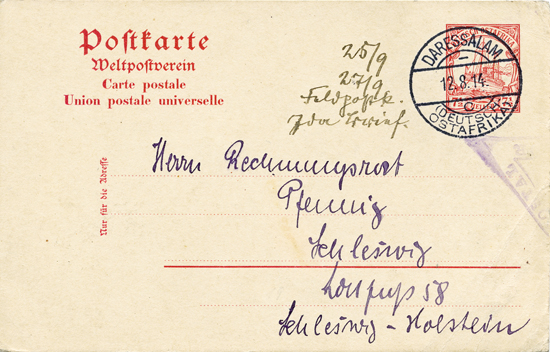 Postkarte
Weltpostverein
Carte postale
Union postale universelle
25/9
27/9
Feldpostk.
DARESSALAM
12.8.14.
C
(DEUTSCH-
OSTAFRIKA)
Nur für die Adresse
Herrn Rechnungsrat
Pfennig
Schleswig
Lollfuß 58
Schleswig-Holstein